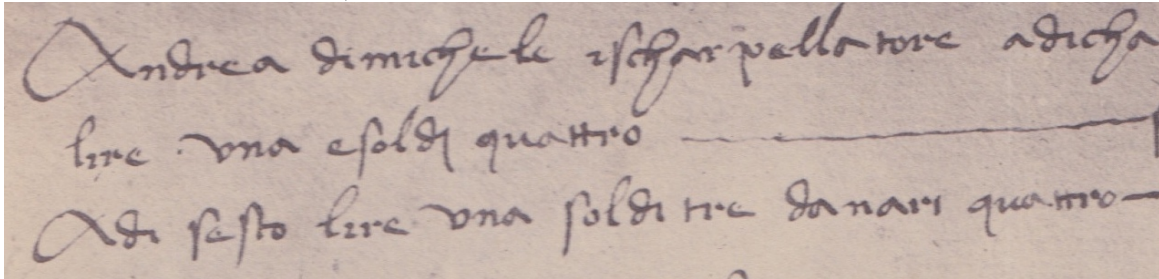 Andrea dimichele ischarpellatore adicha
lire una esoldj quattro
Adi sesto lire una soldi tre danari quattro